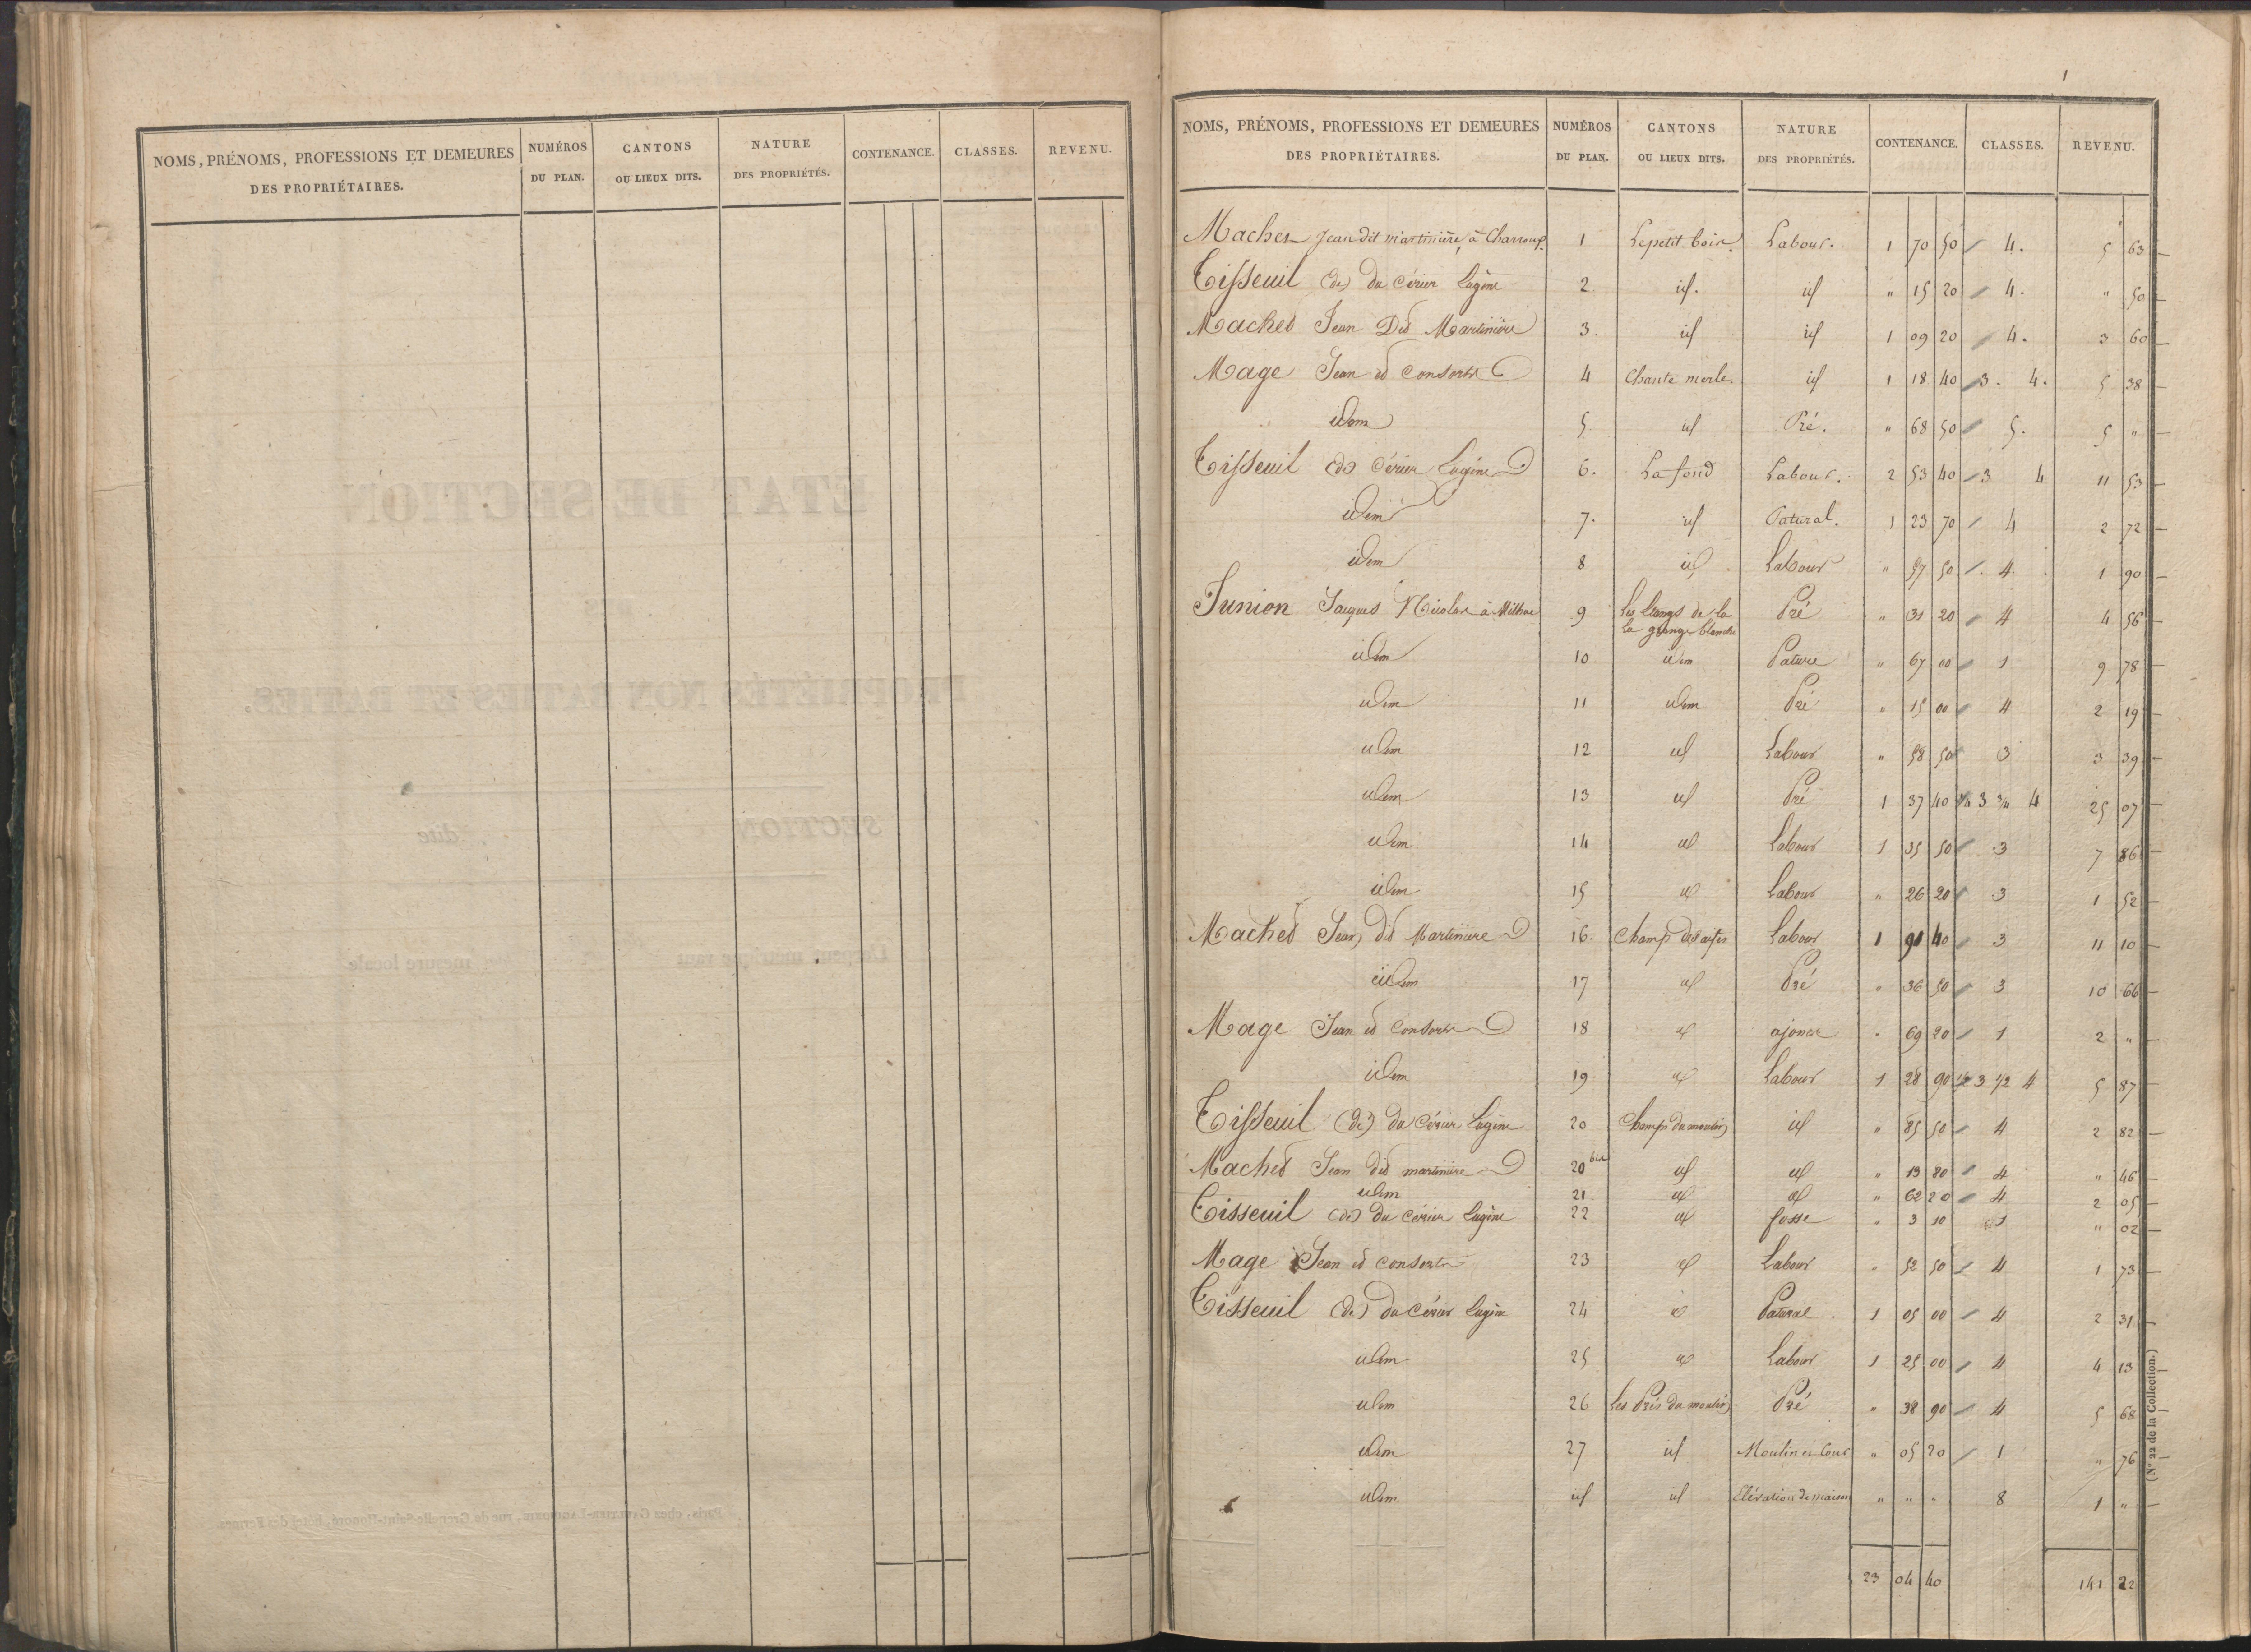 NOMS, PRÉNOMS, PROFESSIONS ET DEMEURES DES PROPRIÉTAIRES. NUMÉROS DU PLAN. CANTONS OU LIEUX DITS. NATURE DES PROPRIÉTÉS. CONTENANCE. CLASSES. REVENU.
1
NOMS, PRÉNOMS, PROFESSIONS ET DEMEURES DES PROPRIÉTAIRES. NUMÉROS DU PLAN. CANTONS OU LIEUX DITS. NATURE DES PROPRIÉTÉS. CONTENANCE. CLASSES. REVENU.
Jean dit martinière, à Charroux 1 Le petit bois. Labour. 1 70 50 4. 5 63
Tisseuil (de) du Cérier Eugène 2 id. id " 15 20 4. " 50
Machet Jean Dit Martinière 3. id id 1 09 20 4. 3 60
Mage Jean et Consorts 4 Chante merle. id 1 18 40 3. 4. 5 38
idem 5 id Pré. " 68 50 5. 5 "
Tisseuil (de) Cérier Eugène 6. La fond Labour. 2 53 40 3 4 11 53
idem 7. id Patural. 1 23 70 4 2 72
idem 8 id Labour " 57 50 4. 1 90
Junion Jacques Nicolas à 9 Les de la la grange blanche Pré " 31 20 4 4 56
idem 10 idem Pature " 67 00 1 9 78
idem 11 idem Pré " 15 00 4 2 19
idem 12 id Labour " 58 50 3 3 39
idem 13 id Pré 1 37 40 1/4 3 3/4 4 25 07
idem 14 id Labour 1 35 50 3 7 86
idem 15 id Labour " 26 20 3 1 52
Machet Jean dit Martinière 16. Champ Labour 1 91 40 3 11 10
idem 17 id Pré " 36 50 3 10 66
Mage Jean et Consorts 18 id ajoncs " 69 20 1 2 "
idem 19 id Labour 1 28 90 1/2 3 1/2 4 5 87
Tisseuil (de) du Cérier Eugène 20 Champs du moulin id " 85 50 4 2 82
Machet Jean dit martinière 20 bis id id " 13 80 4 " 46
idem 21. id id " 62 20 4 2 05
Tisseuil (de) du Cérier Eugène 22 id fosse " 3 10 1 " 02
Mage Jean et consorts 23 id Labour " 52 50 4 1 73
Tisseuil (de) du Cérier Eugène 24 id Patural 1 05 00 4 2 31
idem 25 id Labour 1 25 00 4 4 13
idem 26 Les Prés du moulin Pré " 38 90 4 5 68
idem 27 id Moulin et Cour " 05 20 1 " 76
idem id id Elévation de maison " " " 8 1 "
23 04 40 141 22
(N° 22 de la Collection.)